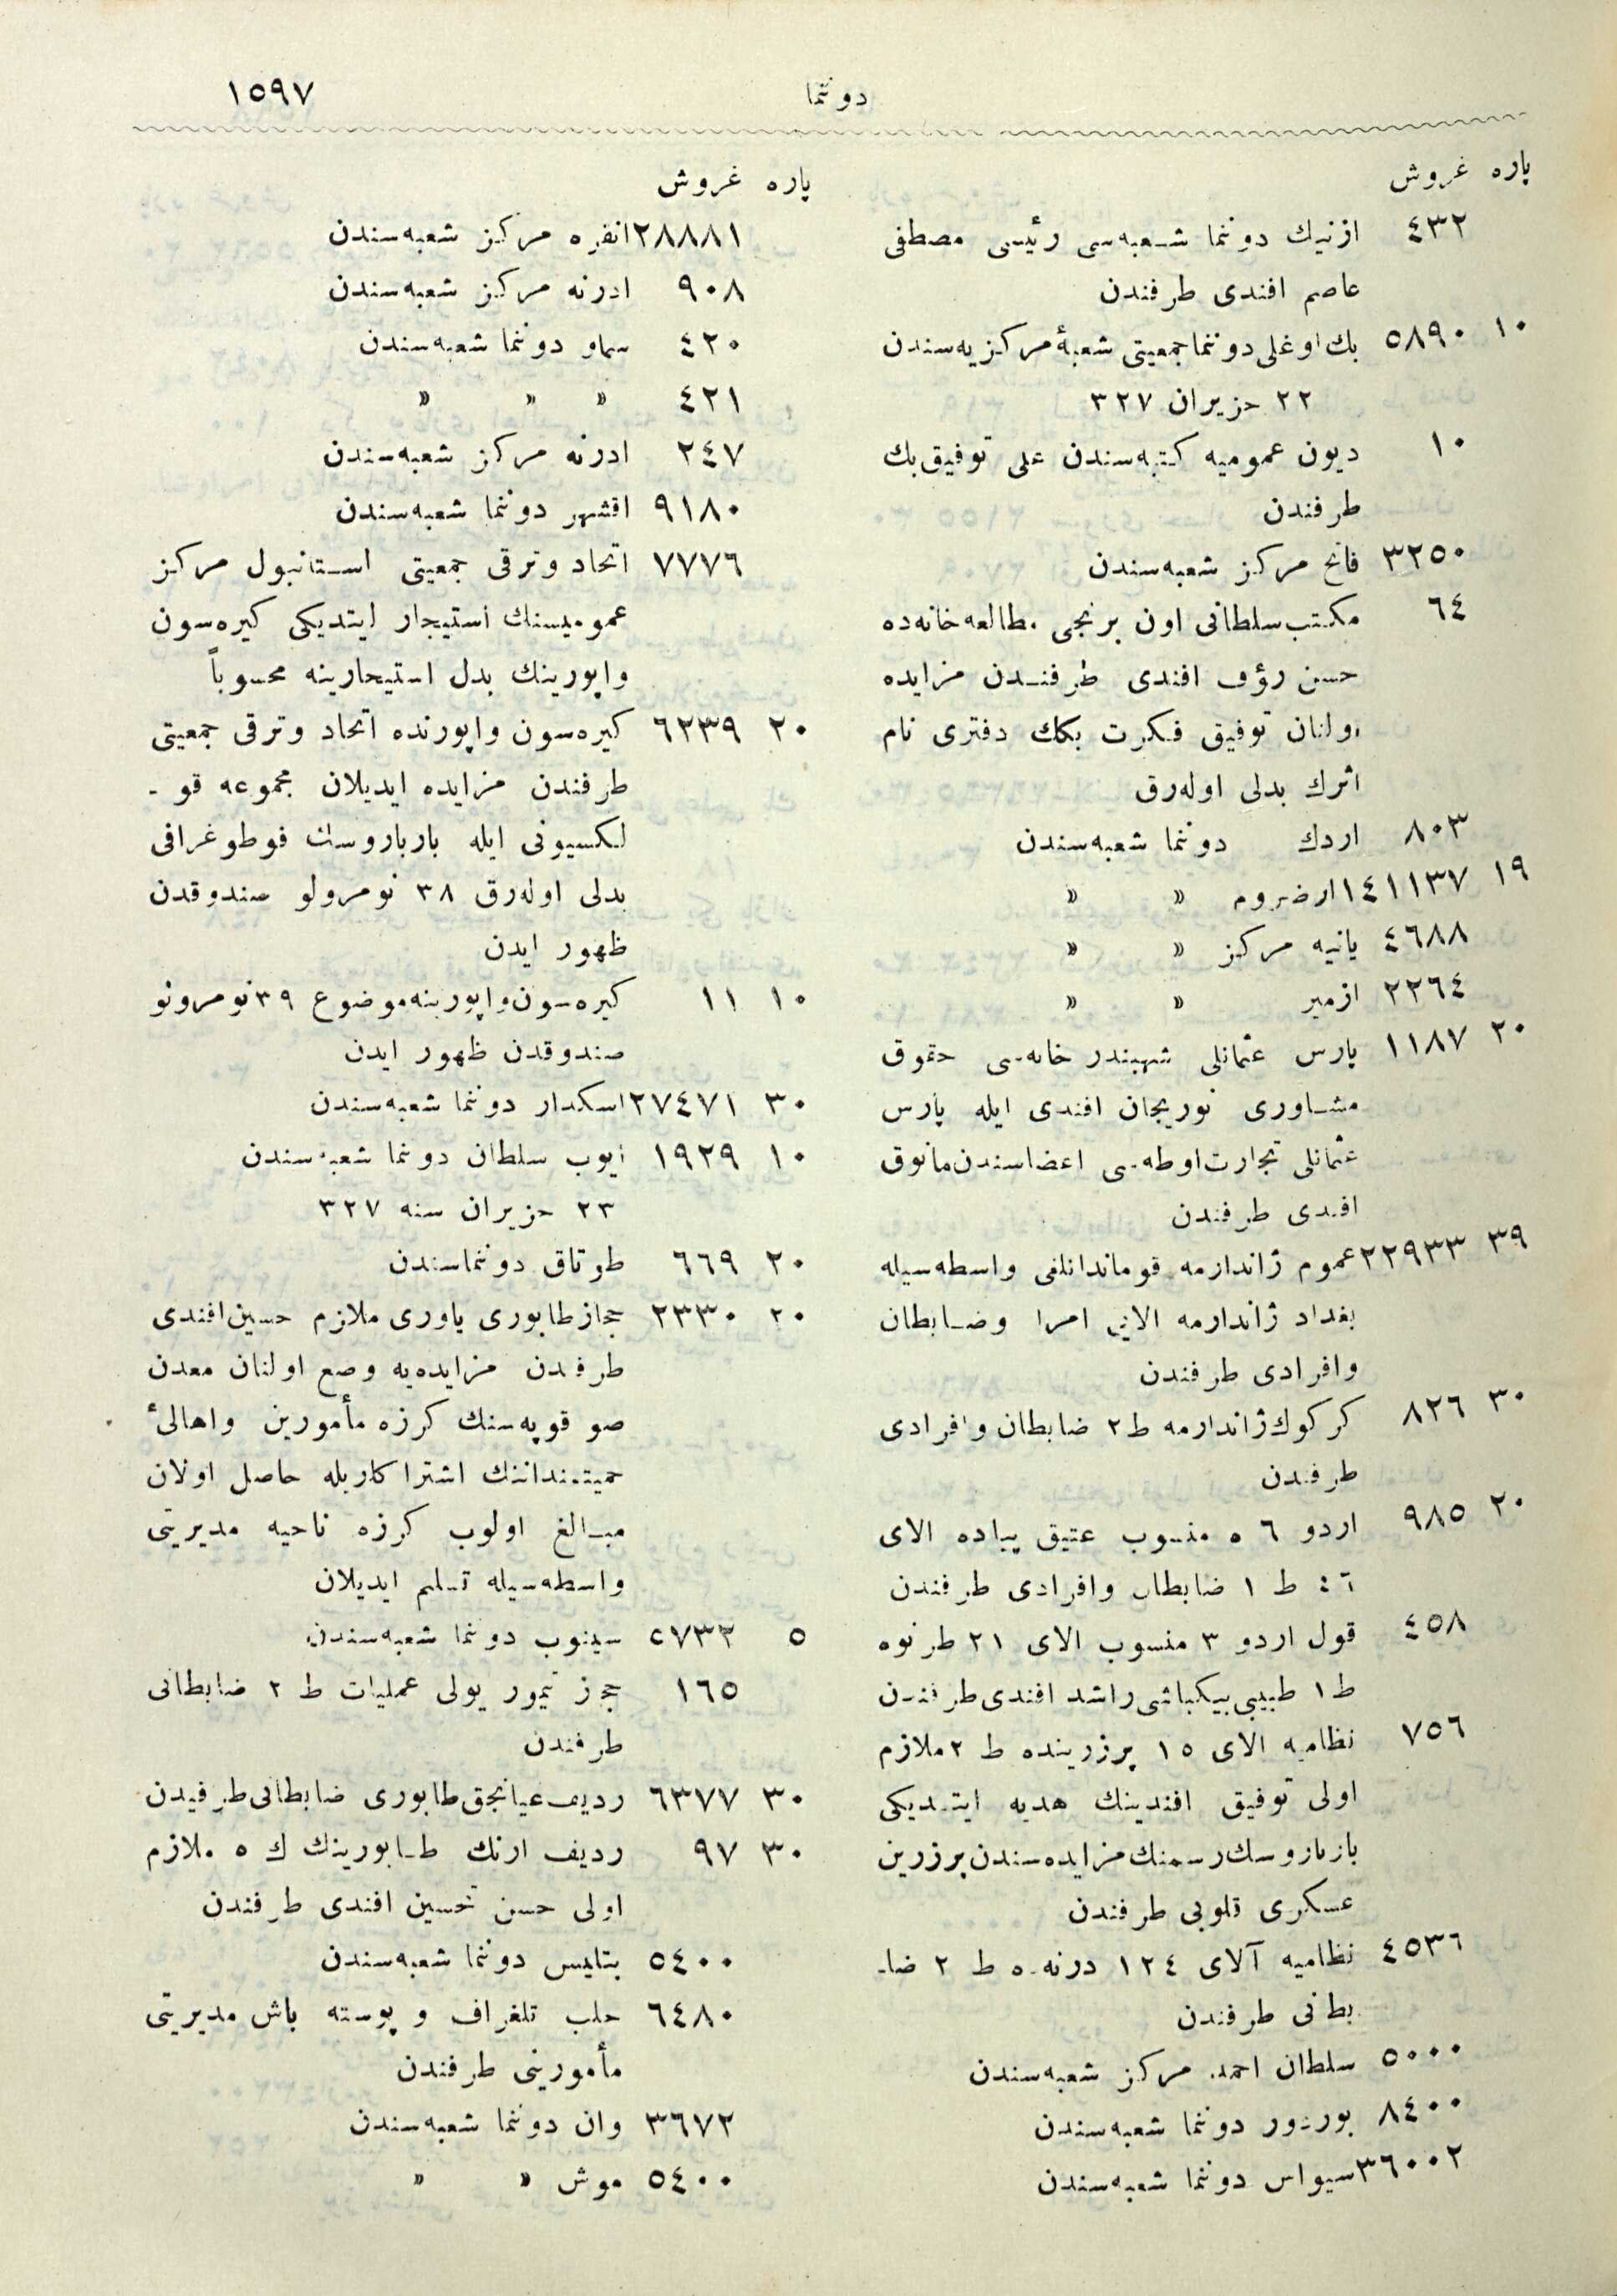 دوننما ١٥٩٧
پاره غروش
٤٣٢ ازنيك دوننما شعبه‌سى رئيسى مصطفى
عاصم افندى طرفندن
١٠ ٥٨٩٠ بك اوغلى دوننما جمعيتى شعبهٔ مركزيه‌سندن
٢٢ حزيران ٣٢٧
١٠ ديون عموميه كتبه‌سندن على توفيق بك
طرفندن
٣٢٥٠ فاتح مركز شعبه‌سندن
٦٤ مكتب سلطانى اون برنجى مطالعه‌خانه‌ده
حسن رؤف افندى طرفندن مزايده
اولنان توفيق فكرت بكك دفترى نام
اثرك بدلى اوله‌رق
٨٠٣ اردك دوننما شعبه‌سندن
١٩ ١٤١١٣٧ ارضروم » »
٤٦٨٨ يانيه مركز » »
٢٢٦٤ ازمير » »
٢٠ ١١٨٧ پارس عثمانلى شهبندرخانه‌سى حقوق
مشاورى نوريجان افندى ايله پارس
عثمانلى تجارت اوطه‌سى اعضاسندن مانوق
افندى طرفندن
٣٩ ٢٢٩٣٣ عموم ژاندارمه قوماندانلغى واسطه‌سيله
بغداد ژاندارمه الايى امرا وضابطان
وافرادى طرفندن
٣٠ ٨٢٦ كركوك ژاندارمه ط ٢ ضابطان وافرادى
طرفندن
٢٠ ٩٨٥ اردو ٦ ه منسوب عتيق پياده الاى
ط ١ ضابطان وافرادى طرفندن
٤٥٨ قول اردو ٣ منسوب الاى ٢١ طرنوه
ط ١ طبيبى بيكباشى راشد افندى طرفندن
٧٥٦ نظاميه الاى ١٥ پرزرينده ط ٢ ملازم
اولى توفيق افندينك هديه ايتديكى
بارباروسك رسمنك مزايده‌سندن پرزرين
عسكرى قلوبى طرفندن
٤٥٣٦ نظاميه آلاى ١٢٤ درنه‌ ه ط ٢ ضا-
بطانى طرفندن
٥٠٠٠ سلطان احمد مركز شعبه‌سندن
٨٤٠٠ بوردور دوننما شعبه‌سندن
٣٦٠٠٢ سيواس دوننما شعبه‌سندن
پاره غروش
٢٨٨٨١ انقره مركز شعبه‌سندن
٩٠٨ ادرنه مركز شعبه‌سندن
٤٢٠ سماو دوننما شعبه‌سندن
٤٢١ » » »
٢٤٧ ادرنه مركز شعبه‌سندن
٩١٨٠ اقشهر دوننما شعبه‌سندن
٧٧٧٦ اتحاد وترقى جمعيتى استانبول مركز
عموميسنك استيجار ايتديكى كيره‌سون
واپورينك بدل استيجارينه محسوباً
٢٠ ٦٢٣٩ كيره‌سون واپورنده اتحاد وترقى جمعيتى
طرفندن مزايده ايديلان مجموعه قو -
لكسيونى ايله بارباروسك فوطوغرافى
بدلى اوله‌رق ٣٨ نومرولو صندوقدن
ظهور ايدن
١٠ ١١ كيره‌سون واپورينه موضوع ٣٩ نومرولو
صندوقدن ظهور ايدن
٣٠ ٢٧٤٧١ اسكدار دوننما شعبه‌سندن
١٠ ١٩٢٩ ايوب سلطان دوننما شعبه‌سندن
٢٣ حزيران سنه ٣٢٧
٢٠ ٦٦٩ طوتاق دوننماسندن
٢٠ ٢٣٣٠ حجاز طابورى ياورى ملازم حسين افندى
طرفندن مزايده‌يه وضع اولنان معدن
صو قوپه‌سنك كرزه مأمورين واهالىٔ
حميتمنداننك اشتراكاريله حاصل اولان
مبالغ اولوب كرزه ناحيه مديريتى
واسطه‌سيله تسليم ايديلان
٥ ٥٧٣٢ سينوب دوننما شعبه‌سندن
١٦٥ حجاز تيمور يولى عمليات ط ٢ ضابطانى
طرفندن
٣٠ ٦٣٧٧ رديف عيانجق طابورى ضابطانى طرفيدن
٣٠ ٩٧ رديف ارنك طابورينك ك ٥ ملازم
اولى حسن تحسين افندى طرفندن
٥٤٠٠ بتليس دوننما شعبه‌سندن
٦٤٨٠ حلب تلغراف و پوسته باش مديريتى
مأمورينى طرفندن
٣٦٧٢ وان دوننما شعبه‌سندن
٥٤٠٠ موش » »